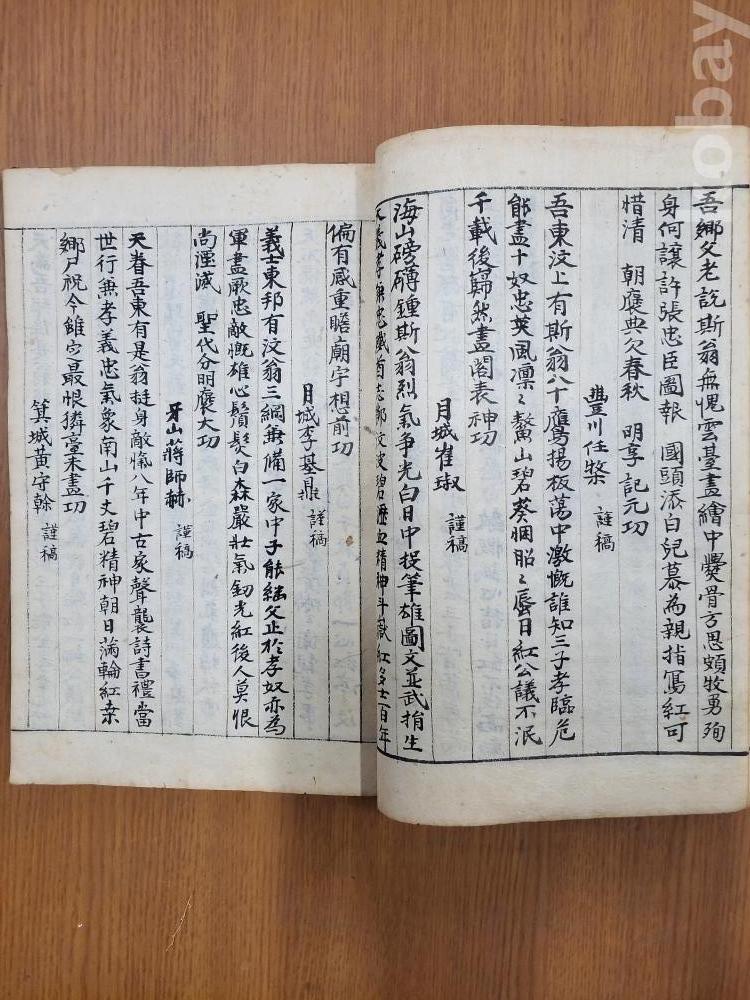 吾鄉父老說斯翁無愧雲臺畫繪中爨骨方思頗牧勇殉
身何讓許張忠臣圖報 國頭添白兒慕為親指寫紅可
惜清 朝褒典欠春秋 明享記元功
豊川任檠 謹稿
吾東汶上有斯翁八十鷹揚板蕩中激慨誰知三子孝臨危
能盡十奴忠英風凜〻鰲山碧葵悃昭〻蜃日紅公議不泯
千載後歸然畫閣表神功
月城崔琡 謹稿
海山磅礴鍾斯翁烈氣爭光白日中投筆雄圖文並武捐生
大義孝無忠 百年
偏有感重瞻廟宇想前功
月城李基鼎 謹稿
義士東邦有汶翁三綱兼備一家中子能繼父止於孝奴亦為
軍盡厥忠敵愾雄心鬢髮白森嚴壯氣釰光紅後人莫恨
尚湮滅 聖代分明褒大功
牙山蔣師赫 謹稿
天眷吾東有是翁挺身敵愾八年中古家聲襲詩書禮當
世行兼孝義忠氣象南山千丈碧精神朝日滿輪紅桒
鄉尸祝今雖守最恨獜臺未盡功
箕城黃守幹 謹稿
obay